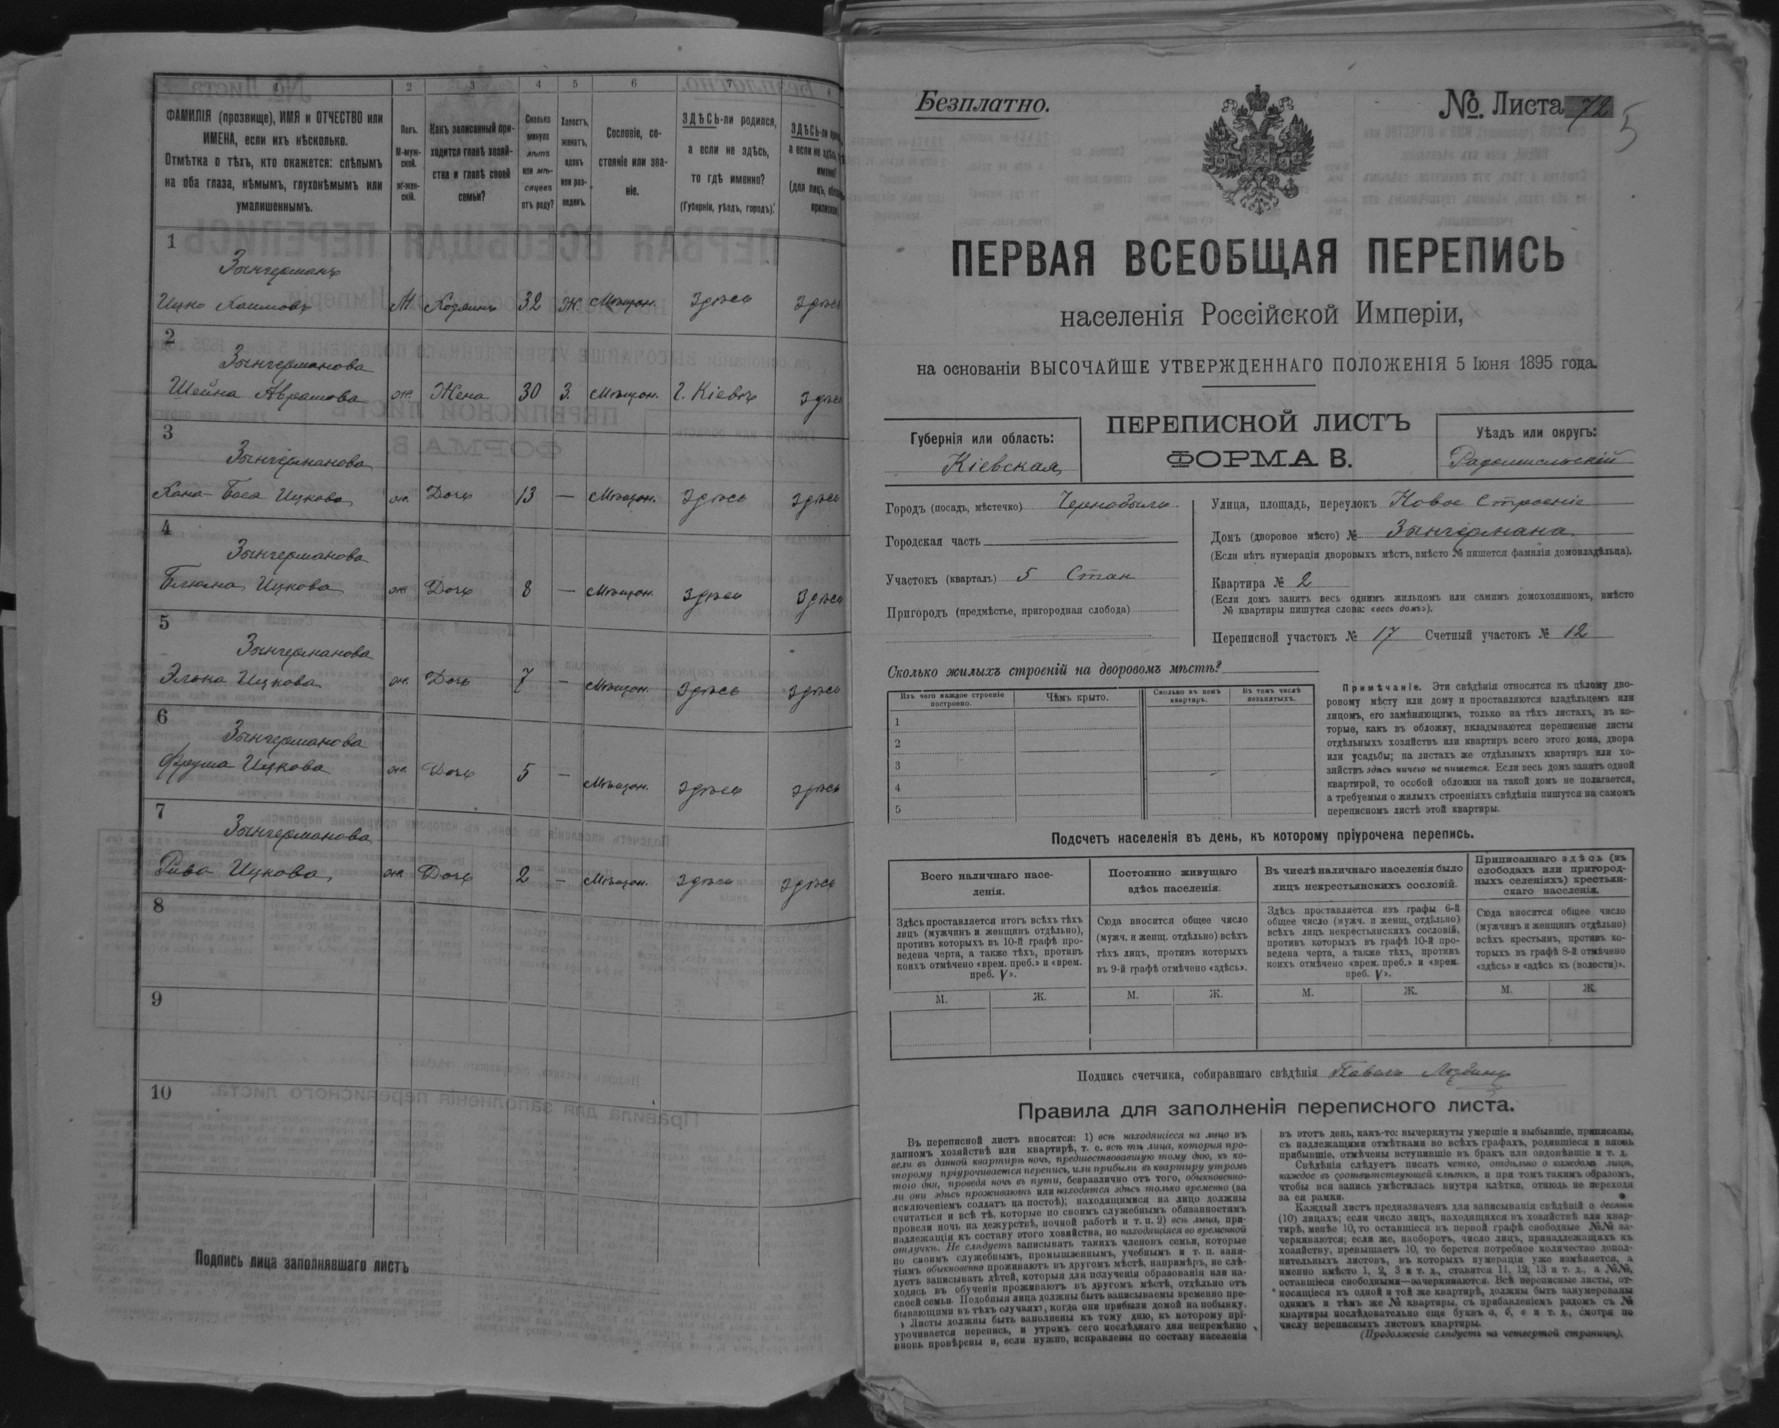 1
2
3
4
5
6
7
8
ФАМИЛІЯ (прозвище), ИМЯ и ОТЧЕСТВО или
ИМЕНА, если ихъ нѣсколько.
Отмѣтка о тѣхъ, кто окажется: слѣпымъ
на оба глаза, нѣмымъ, глухонѣмымъ или
умалишеннымъ.
Полъ.
М-муж-
ской.
Ж-жен-
скій.
Какъ записанный при-
ходится главѣ хозяй-
ства и главѣ своей
семьи?
Сколько
минуло
лѣтъ
или мѣ-
сяцевъ
отъ роду?
Холостъ,
женатъ,
вдовъ
или раз-
веденъ.
Сословіе, со-
стояніе или зва-
ніе.
ЗДѢСЬ-ли родился,
а если не здѣсь,
то гдѣ именно?
(Губернія, уѣздъ, городъ).
ЗДѢСЬ-ли
а если не здѣсь,
именно?
(для лицъ,
1
Зынгерманъ
Ицко Хаимовъ М Хозяинъ 32 Ж. Мѣщан. здѣсь здѣсь
2
Зынгерманова
Шейна Аврамова ж. Жена 30 З. Мѣщан. г. Кіевъ здѣсь
3
Зынгерманова
Хана-Бася Ицкова ж. Дочь 13 — Мѣщан. здѣсь здѣсь
4
Зынгерманова
Ицкова ж. Дочь 8 — Мѣщан. здѣсь здѣсь
5
Зынгерманова
Ицкова ж. Дочь 7 — Мѣщан. здѣсь здѣсь
6
Зынгерманова
Фрума Ицкова ж. Дочь 5 — Мѣщан. здѣсь здѣсь
7
Зынгерманова
Рива Ицкова ж. Дочь 2 — Мѣщан. здѣсь здѣсь
8
9
10
Подпись лица заполнявшаго листъ
Безплатно.
№ Листа 72
5
ПЕРВАЯ ВСЕОБЩАЯ ПЕРЕПИСЬ
населенія Россійской Имперіи,
на основаніи ВЫСОЧАЙШЕ УТВЕРЖДЕННАГО ПОЛОЖЕНІЯ 5 Іюня 1895 года.
Губернія или область:
Кіевская
ПЕРЕПИСНОЙ ЛИСТЪ
ФОРМА В.
Уѣздъ или округъ:
Радомысльскій
Городъ (посадъ, мѣстечко) Чернобыль
Городская часть
Участокъ (кварталъ) 5 Стан
Пригородъ (предмѣстье, пригородная слобода)
Улица, площадь, переулокъ Новое Строеніе
Домъ (дворовое мѣсто) № Зынгермана
(Если нѣтъ нумераціи дворовыхъ мѣстъ, вмѣсто № пишется фамилія домовладѣльца).
Квартира № 2
(Если домъ занятъ весь однимъ жильцомъ или самимъ домохозяиномъ, вмѣсто
№ квартиры пишутся слова: «весь домъ»).
Переписной участокъ № 17 Счетный участокъ № 12
Сколько жилыхъ строеній на дворовомъ мѣстѣ?
Изъ чего каждое строеніе
построено.
Чѣмъ крыто.
Сколько въ немъ
квартиръ.
Въ томъ числѣ
незанятыхъ.
1
2
3
4
5
Примѣчаніе. Эти свѣдѣнія относятся къ цѣлому дво-
ровому мѣсту или дому и проставляются владѣльцемъ или
лицомъ, его замѣняющимъ, только на тѣхъ листахъ, въ ко-
торые, какъ въ обложку, вкладываются переписные листы
отдѣльныхъ хозяйствъ или квартиръ всего этого дома, двора
или усадьбы; на листахъ же отдѣльныхъ квартиръ или хо-
зяйствъ здѣсь ничего не пишется. Если весь домъ занятъ одной
квартирой, то особой обложки на такой домъ не полагается,
а требуемыя о жилыхъ строеніяхъ свѣдѣнія пишутся на самомъ
переписномъ листѣ этой квартиры.
Подсчетъ населенія въ день, къ которому пріурочена перепись.
Всего наличнаго насе-
ленія.
Постоянно живущаго
здѣсь населенія.
Въ числѣ наличнаго населенія было
лицъ некрестьянскихъ сословій.
Приписаннаго здѣсь (въ
слободахъ или пригород-
ныхъ селеніяхъ) крестьян-
скаго населенія.
Здѣсь проставляется итогъ всѣхъ тѣхъ
лицъ (мужчинъ и женщинъ отдѣльно),
противъ которыхъ въ 10-й графѣ про-
ведена черта, а также тѣхъ, противъ
коихъ отмѣчено «врем. преб.» и «врем.
преб. V».
Сюда вносится общее число
(мужч. и женщ. отдѣльно) всѣхъ
тѣхъ лицъ, противъ которыхъ
въ 9-й графѣ отмѣчено «здѣсь».
Здѣсь проставляется изъ графы 6-й
общее число (мужч. и женщ. отдѣльно)
всѣхъ лицъ некрестьянскихъ сословій,
противъ которыхъ въ графѣ 10-й про-
ведена черта, а также тѣхъ, противъ
коихъ отмѣчено «врем. преб.» и «врем.
преб. V».
Сюда вносится общее число
(мужчинъ и женщинъ отдѣльно)
всѣхъ крестьянъ, противъ ко-
торыхъ въ графѣ 8-й отмѣчено
«здѣсь» и «здѣсь къ (волости)».
М. Ж. М. Ж. М. Ж. М. Ж.
Подпись счетчика, собиравшаго свѣдѣнія Павелъ
Правила для заполненія переписного листа.
Въ переписной листъ вносятся: 1) всѣ находящіеся на лицо въ
данномъ хозяйствѣ или квартирѣ, т. е. всѣ тѣ лица, которыя про-
вели въ данной квартирѣ ночь, предшествовавшую тому дню, къ ко-
торому пріурочивается перепись, или прибыли въ квартиру утромъ
того дня, проведя ночь въ пути, безразлично отъ того, обыкновенно-
ли они здѣсь проживаютъ или находятся здѣсь только временно (за
исключеніемъ солдатъ на постоѣ); находящимися на лицо должны
считаться и всѣ тѣ, которые по своимъ служебнымъ обязанностямъ
провели ночь на дежурствѣ, ночной работѣ и т. п. 2) всѣ лица, при-
надлежащія къ составу этого хозяйства, но находящіяся во временной
отлучкѣ. Не слѣдуетъ записывать такихъ членовъ семьи, которые
по своимъ служебнымъ, промышленнымъ, учебнымъ и т. п. заня-
тіямъ обыкновенно проживаютъ въ другомъ мѣстѣ, напримѣръ, не слѣ-
дуетъ записывать дѣтей, которыя для полученія образованія или на-
ходясь въ обученіи проживаютъ въ другомъ мѣстѣ, отдѣльно отъ
своей семьи. Подобныя лица должны быть записываемы временно пре-
бывающими въ тѣхъ случаяхъ, когда они прибыли домой на побывку.
Листы должны быть заполнены къ тому дню, къ которому прі-
урочивается перепись, и утромъ сего послѣдняго дня непремѣнно
вновь провѣрены и, если нужно, исправлены по составу населенія
въ этотъ день, какъ-то: вычеркнуты умершіе и выбывшіе, приписаны,
съ надлежащими отмѣтками во всѣхъ графахъ, родившіеся и вновь
прибывшіе, отмѣчены вступившіе въ бракъ или овдовѣвшіе и т. д.
Свѣдѣнія слѣдуетъ писать четко, отдѣльно о каждомъ лицѣ,
каждое въ соотвѣтствующей клѣткѣ, и при томъ такимъ образомъ,
чтобы вся запись умѣстилась внутри клѣтки, отнюдь не переходя
за ея рамки.
Каждый листъ предназначенъ для записыванія свѣдѣній о десяти
(10) лицахъ; если число лицъ, находящихся въ хозяйствѣ или квар-
тирѣ, менѣе 10, то оставшіеся въ первой графѣ свободные №№ за-
черкиваются; если же, наоборотъ, число лицъ, принадлежащихъ къ
хозяйству, превышаетъ 10, то берется потребное количество допол-
нительныхъ листовъ, въ которыхъ нумерація уже измѣняется, а
именно вмѣсто 1, 2, 3 и т. д., ставятся 11, 12, 13 и т. д., а №№,
оставшіеся свободными—зачеркиваются. Всѣ переписные листы, от-
носящіеся къ одной и той же квартирѣ, должны быть занумерованы
однимъ и тѣмъ же № квартиры, съ прибавленіемъ рядомъ съ №
квартиры послѣдовательно еще буквъ а, б, в и т. д., смотря по
числу переписныхъ листовъ квартиры.
(Продолженіе слѣдуетъ на четвертой страницѣ).